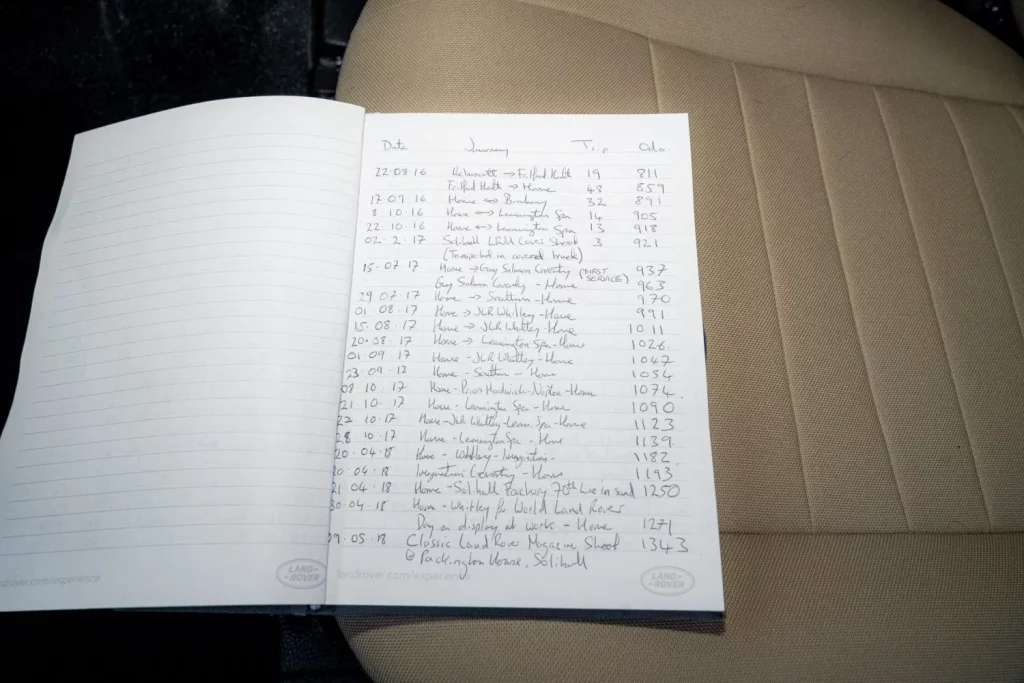 Date Journey Trip Odo
22.08.16 → Frilford Heath 19 811
Frilford Heath → Home 48 859
17.09.16 Home ↔ Banbury 32 891
8.10.16 Home ↔ Leamington Spa 14 905
22.10.16 Home ↔ Leamington Spa 13 918
02.2.17 Solihull LRM Cover Shoot 3 921
(Transported in covered truck)
15.07.17 Home → Guy Salmon Coventry (FIRST SERVICE) 937
Guy Salmon Coventry - Home 963
29.07.17 Home → Southam - Home 970
01.08.17 Home → JLR Whitley - Home 991
15.08.17 Home → JLR Whitley - Home 1011
20.08.17 Home → Leamington Spa - Home 1026
01.09.17 Home - JLR Whitley - Home 1047
23.09.17 Home - Southam - Home 1054
08.10.17 Home - Priors Hardwick - Napton - Home 1074
21.10.17 Home - Leamington Spa - Home 1090
22.10.17 Home - JLR Whitley - Leam Spa - Home 1123
28.10.17 Home - Leamington Spa - Home 1139
20.04.18 Home - Whitley - 1182
20.04.18 Coventry - Home 1193
21.04.18 Home - Solihull Factory 70th Live in sand 1250
30.04.18 Home - Whitley for World Land Rover
Day on display at work - Home 1271
9.05.18 Classic Land Rover Magazine Shoot 1343
@ Packington House, Solihull
landrover.com/experience LAND ROVER
landrover.com/experience LAND ROVER